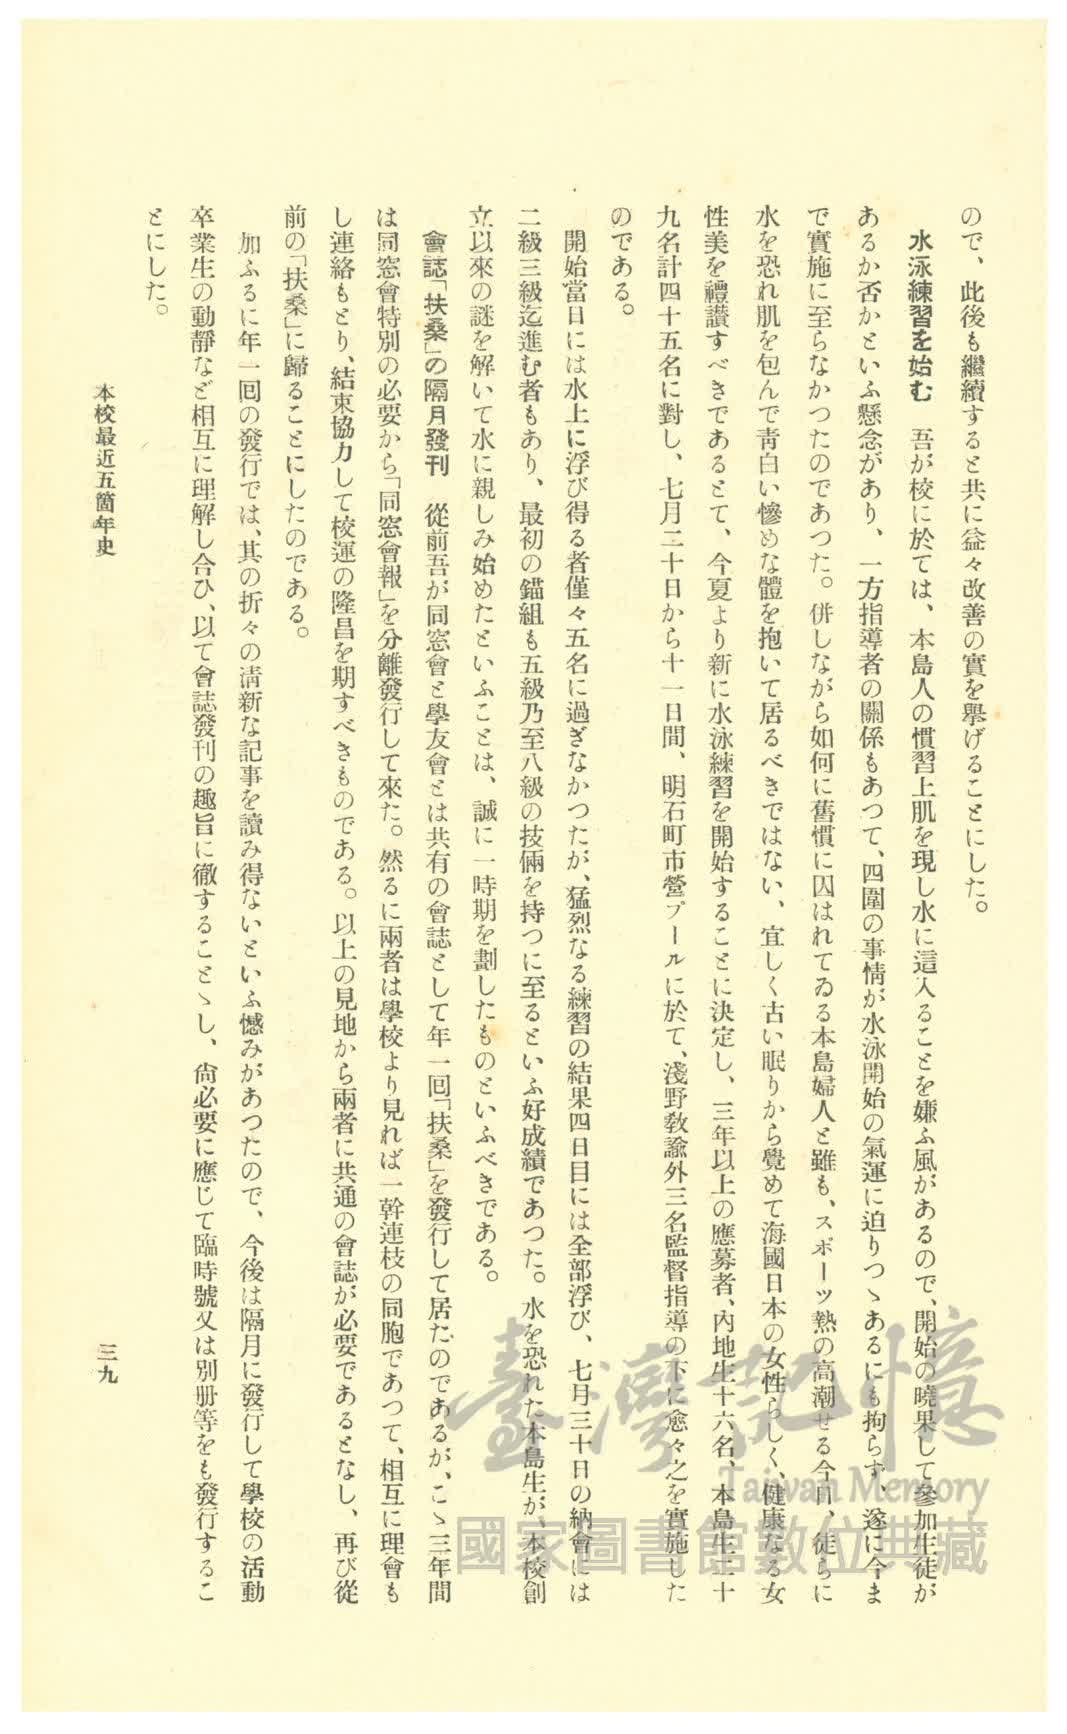 ので、此後も繼續すると共に益々改善の實を擧げることにした。
水泳練習を始む　吾が校に於ては、本島人の慣習上肌を現し水に這入ることを嫌ふ風があるので、開始の曉果して參加生徒が
あるか否かといふ懸念があり、一方指導者の關係もあつて、四圍の事情が水泳開始の氣運に迫りつゝあるにも拘らず、遂に今ま
で實施に至らなかつたのであつた。併しながら如何に舊慣に囚はれてゐる本島婦人と雖も、スポーツ熱の高潮せる今日、徒らに
水を恐れ肌を包んで靑白い慘めな體を抱いて居るべきではない、宜しく古い眠りから覺めて海國日本の女性らしく、健康なる女
性美を禮讃すべきであるとて、今夏より新に水泳練習を開始することに決定し、三年以上の應募者、內地生十六名、本島生二十
九名計四十五名に對し、七月二十日から十一日間、明石町市營プールに於て、淺野敎諭外三名監督指導の下に愈々之を實施した
のである。
開始當日には水上に浮び得る者僅々五名に過ぎなかつたが、猛烈なる練習の結果四日目には全部浮び、七月三十日の納會には
二級三級迄進む者もあり、最初の錨組も五級乃至八級の技倆を持つに至るといふ好成績であつた。水を恐れた本島生が、本校創
立以來の謎を解いて水に親しみ始めたといふことは、誠に一時期を劃したものといふべきである。
會誌「扶桑」の隔月發刊　從前吾が同窓會と學友會とは共有の會誌として年一回「扶桑」を發行して居たのであるが、こゝ三年間
は同窓會特別の必要から「同窓會報」を分離發行して來た。然るに兩者は學校より見れば一幹連枝の同胞であつて、相互に理會も
し連絡もとり、結束協力して校運の隆昌を期すべきものである。以上の見地から兩者に共通の會誌が必要であるとなし、再び從
前の「扶桑」に歸ることにしたのである。
加ふるに年一回の發行では、其の折々の淸新な記事を讀み得ないといふ憾みがあつたので、今後は隔月に發行して學校の活動
卒業生の動靜など相互に理解し合ひ、以て會誌發刊の趣旨に徹することゝし、尙必要に應じて臨時號又は別册等をも發行するこ
とにした。
本校最近五箇年史
三九
臺灣記憶
Taiwan Memory
國家圖書館數位典藏